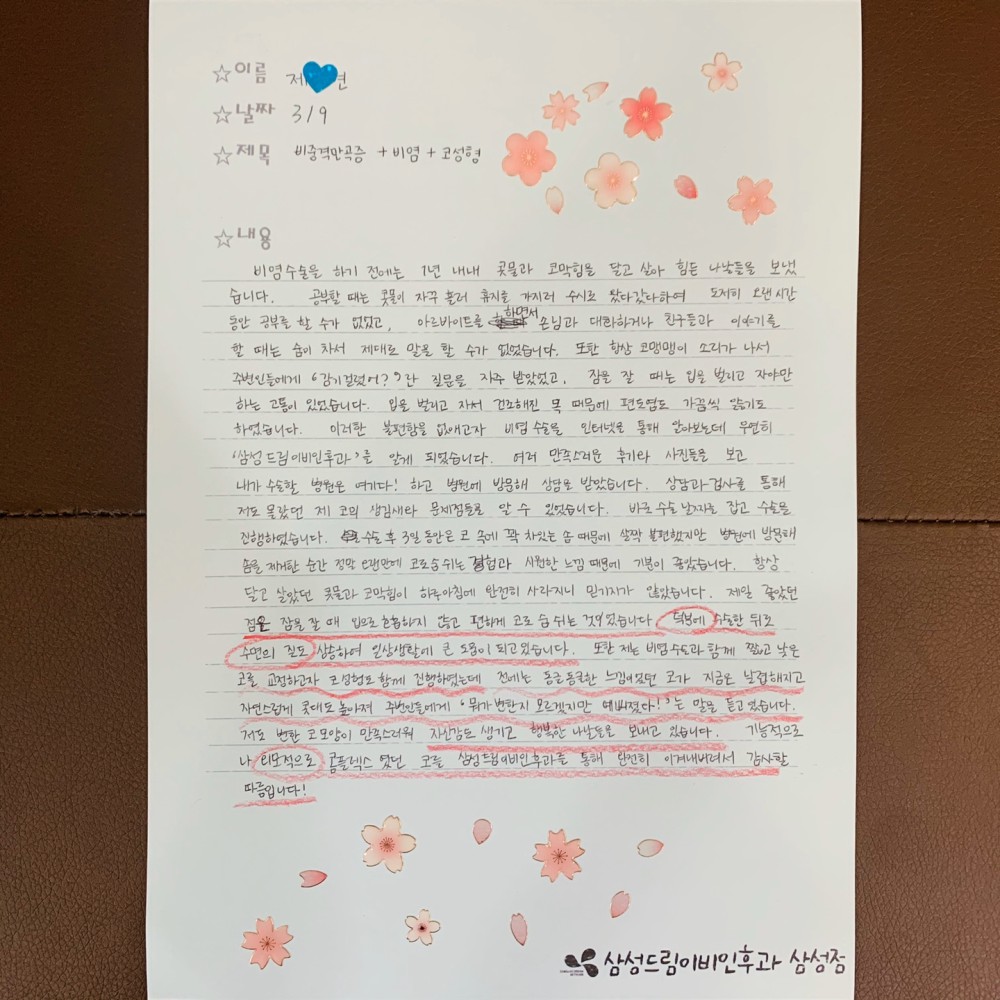 ☆이름 제 연
☆날짜 3/9
☆제목 비중격만곡증 + 비염 + 코성형
☆내용
비염수술을 하기 전에는 1년 내내 콧물과 코막힘을 달고 살아 힘든 나날들을 보냈
습니다. 공부할 때는 콧물이 자꾸 흘러 휴지를 가지러 수시로 왔다갔다하여 도저히 오랜시간
동안 공부를 할 수가 없었고, 아르바이트를 하면서 손님과 대화하거나 친구들과 이야기를
할 때는 숨이 차서 제대로 말을 할 수가 없었습니다. 또한 항상 코맹맹이 소리가 나서
주변인들에게 '감기걸렸어?'란 질문을 자주 받았었고, 잠을 잘 때는 입을 벌리고 자야만
하는 고통이 있었습니다. 입을 벌리고 자서 건조해진 목 때문에 편도염도 가끔씩 앓기도
하였습니다. 이러한 불편함을 없애고자 비염 수술을 인터넷을 통해 알아보는데 우연히
'삼성드림이비인후과'를 알게 되었습니다. 여러 만족스러운 후기와 사진들을 보고
내가 수술할 병원은 여기다! 하고 병원에 방문해 상담을 받았습니다. 상담과 검사를 통해
저도 몰랐던 제 코의 생김새와 문제점들을 알 수 있었습니다. 바로 수술 날짜를 잡고 수술을
진행하였습니다. 수술 후 3일 동안은 코 속에 꽉 차있는 솜 때문에 살짝 불편했지만 병원에 방문해
솜을 제거한 순간 정말 오랜만에 코로 숨쉬는 경험과 시원한 느낌 때문에 기분이 좋았습니다. 항상
달고 살았던 콧물과 코막힘이 하루아침에 완전히 사라지니 믿기지가 않았습니다. 제일 좋았던
점은 잠을 잘 때 입으로 호흡하지 않고 편하게 코로 숨 쉬는 것이었습니다. 덕분에 수술한 뒤로
수면의 질도 상승하여 일상생활에 큰 도움이 되고 있습니다. 또한 저는 비염수술과 함께 짧고 낮은
코를 교정하고자 코성형도 함께 진행하였는데 전에는 동글동글한 느낌이었던 코가 지금은 날렵해지고
자연스럽게 콧대도 높아져 주변인들에게 '뭐가 변한지 모르겠지만 예뻐졌다!'는 말을 듣고 있습니다.
저도 변한 코모양이 만족스러워 자신감도 생기고 행복한 나날들을 보내고 있습니다. 기능적으로
나 외모적으로 콤플렉스였던 코를 삼성드림이비인후과를 통해 완전히 이겨내버려서 감사할
따름입니다!
삼성드림이비인후과 삼성점